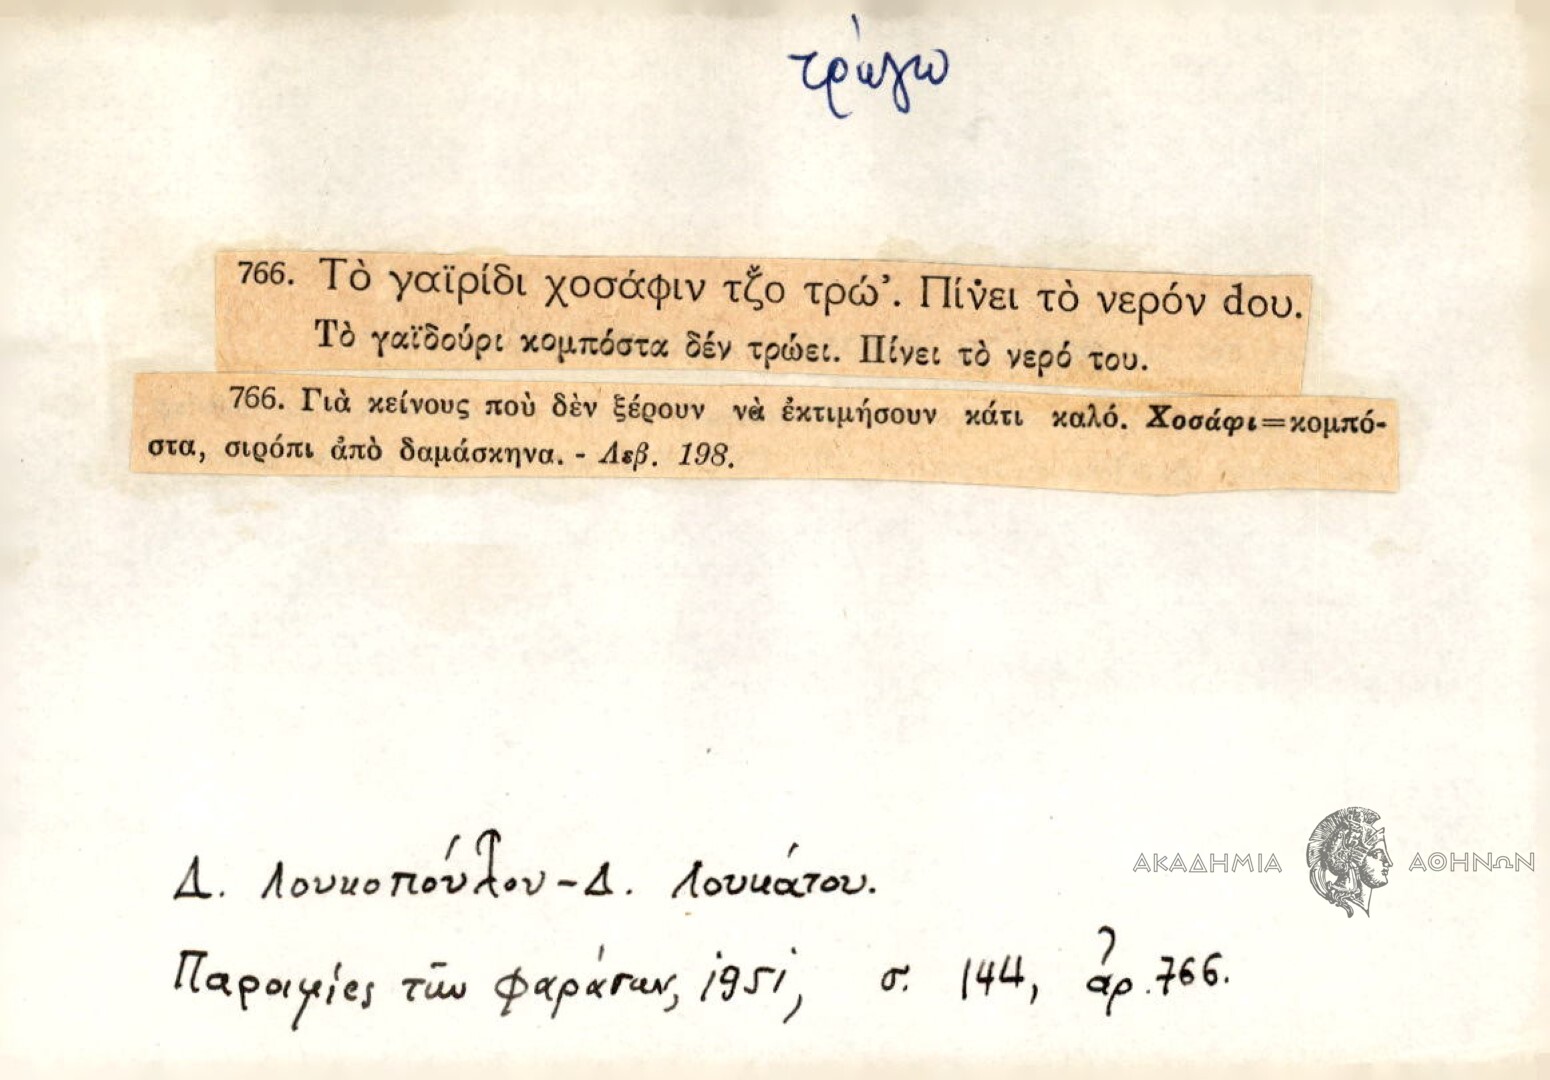 τρώγω
766. Τὸ γαϊρίδι χοσάφιν τζ̌ο τρώ’. Πίν̇ει τὸ νερόν dου.
Τὸ γαϊδούρι κομπόστα δέν τρώει. Πίνει τὸ νερό του.
766. Γιὰ κείνους ποὺ δὲν ξέρουν νὰ ἐκτιμήσουν κάτι καλό. Χοσάφι=κομπό-
στα, σιρόπι ἀπὸ δαμάσκηνα. - Λεβ. 198.
Δ. Λουκοπούλου - Δ. Λουκάτου.
Παροιμίες τῶν Φαράσων, 1951, σ. 144, ἀρ. 766.
ΑΚΑΔΗΜΙΑ ΑΘΗΝΩΝ